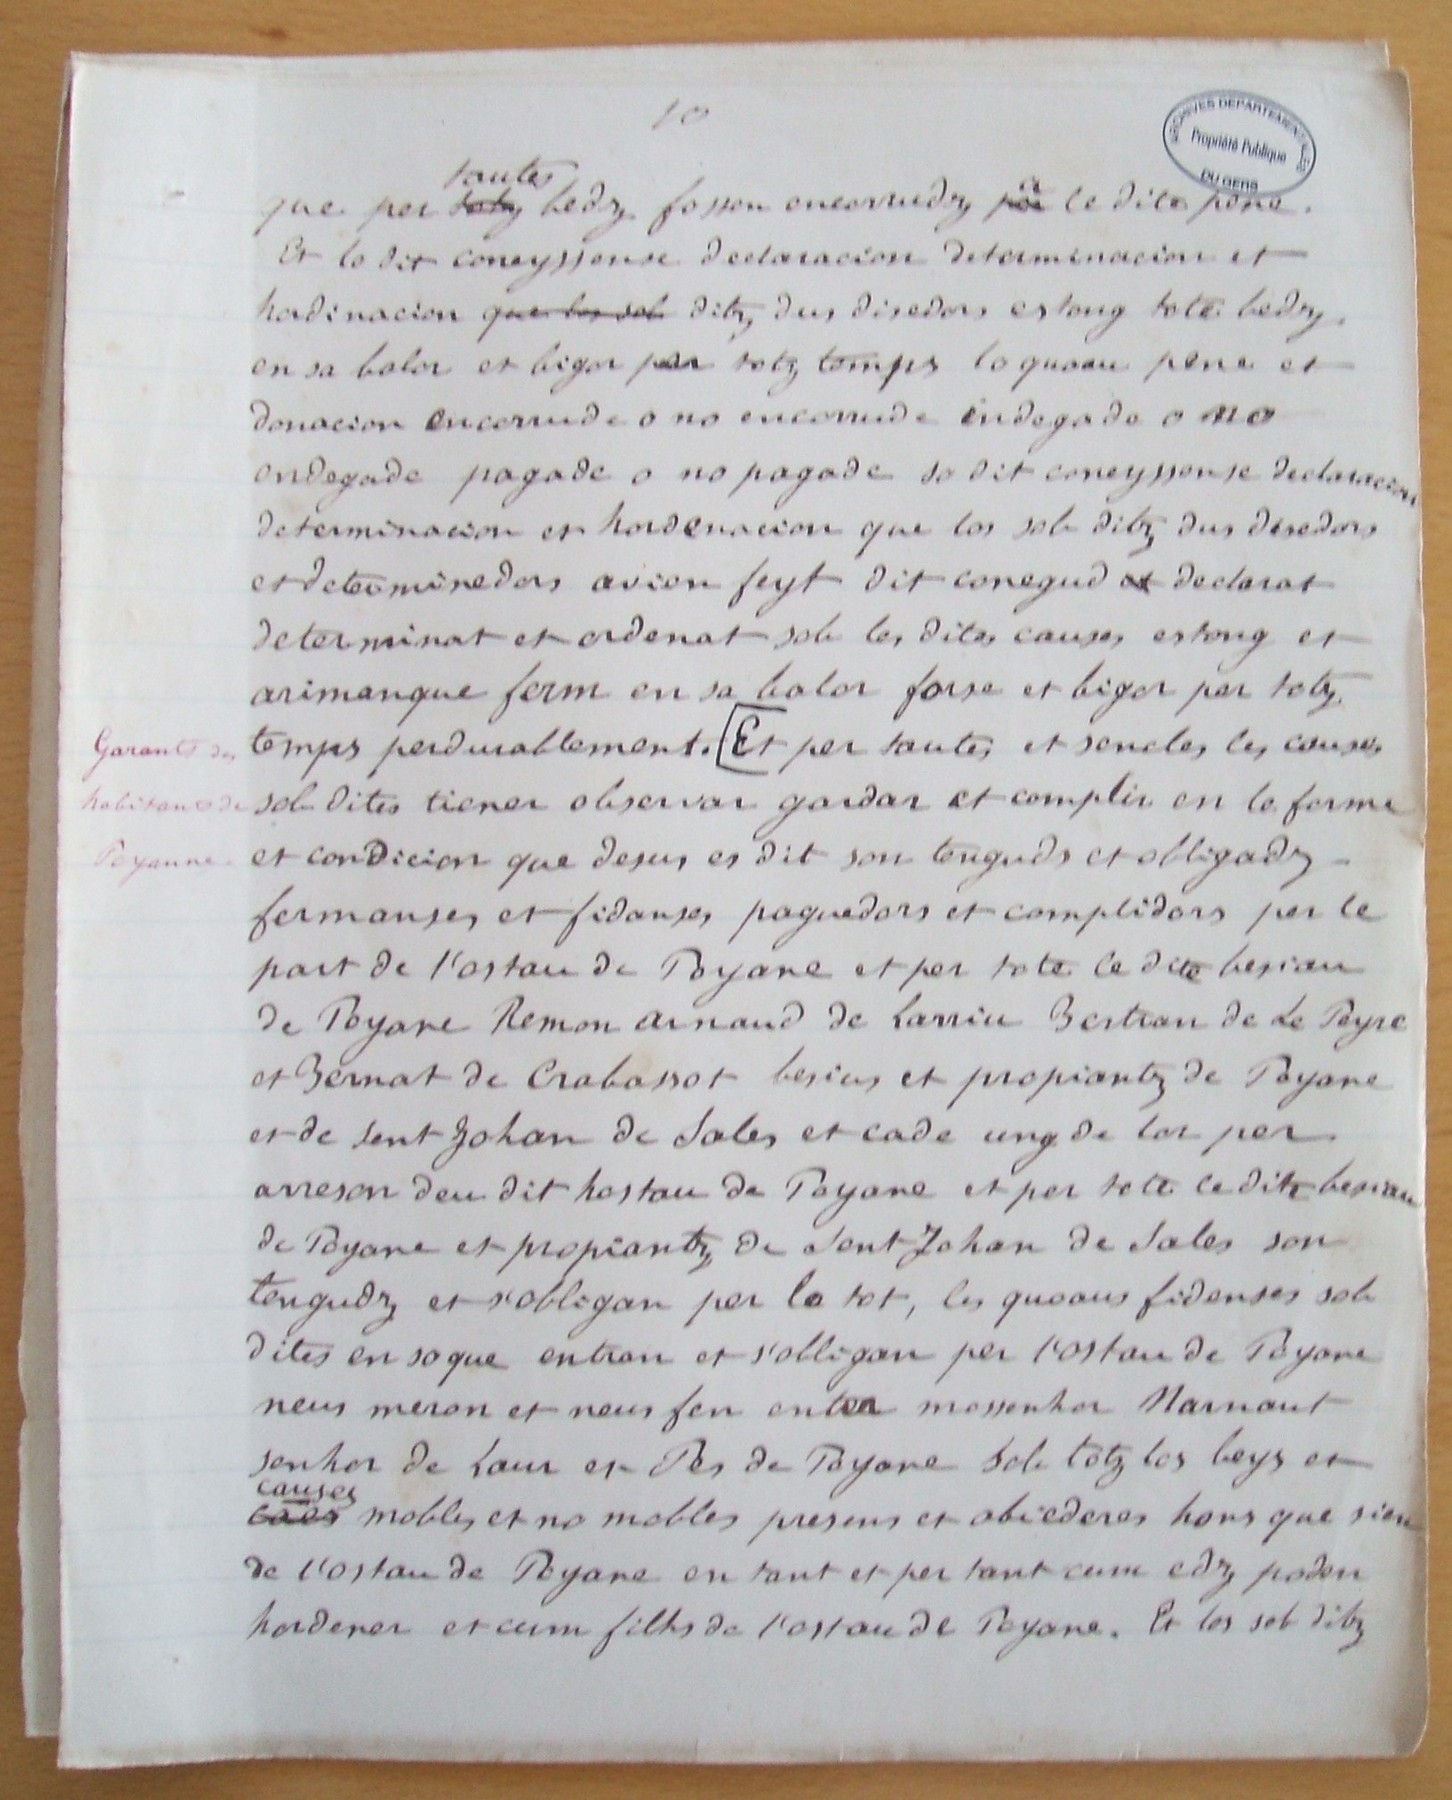 10
ARCHIVES DEPARTEMENTALES
Propriété Publique
DU GERS
tautes
que per totz bedz fossen encorrudz per a le dite pene.
Et lo dit coneyssense declaracion determinacion et
hordinacion que los sob ditz dus disedors estong tote bedz,
en sa balor et bigor per totz temps lo quoau pene et
donacion encorrude o no encorrude endegade o no
endegade pagade o no pagade so dit coneyssense declaracion
determinacion et hordenacion que los sob ditz dus disedors
et determinedors avien feyt dit conegud et declarat
determinat et ordenat sob les dites causes estong et
arimanque ferm en sa balor forse et bigor per totz
temps perdurablement. [Et per tautes et sencles les causes
sob dites tiener observar gardar et complir en le forme
et condicion que desus es dit son tenguds et obligadz
fermanses et fidanses paguedors et complidors per le
part de l'ostau de Poyane et per tote le dite besiau
de Poyane Remon arnaud de Larriu Bertran de Le Peyre
et Bernat de Crabassot besius et propiantz de Poyane
et de Sent Johan de Sales et cade ung de lor per
arreson deu dit hostau de Poyane et per tote le dite besiau
de Poyane et propiantz de Sent Johan de Sales son
tengudz et s'obligan per lo tot, les quoaus fidenses sob
dites en so que entran et s'obligan per l'ostau de Poyane
neus meron et neus fen entrer mossenhor Narnaut
senhor de Laur et Pes de Poyane sob totz los beys et
causes
caes mobles et no mobles presens et abiederes hors que sien
de l'ostau de Poyane en tant et per tant cum edz poden
hordener et cum filhs de l'ostau de Poyane. Et los sob ditz
Garants des
habitans de
Poyanne.